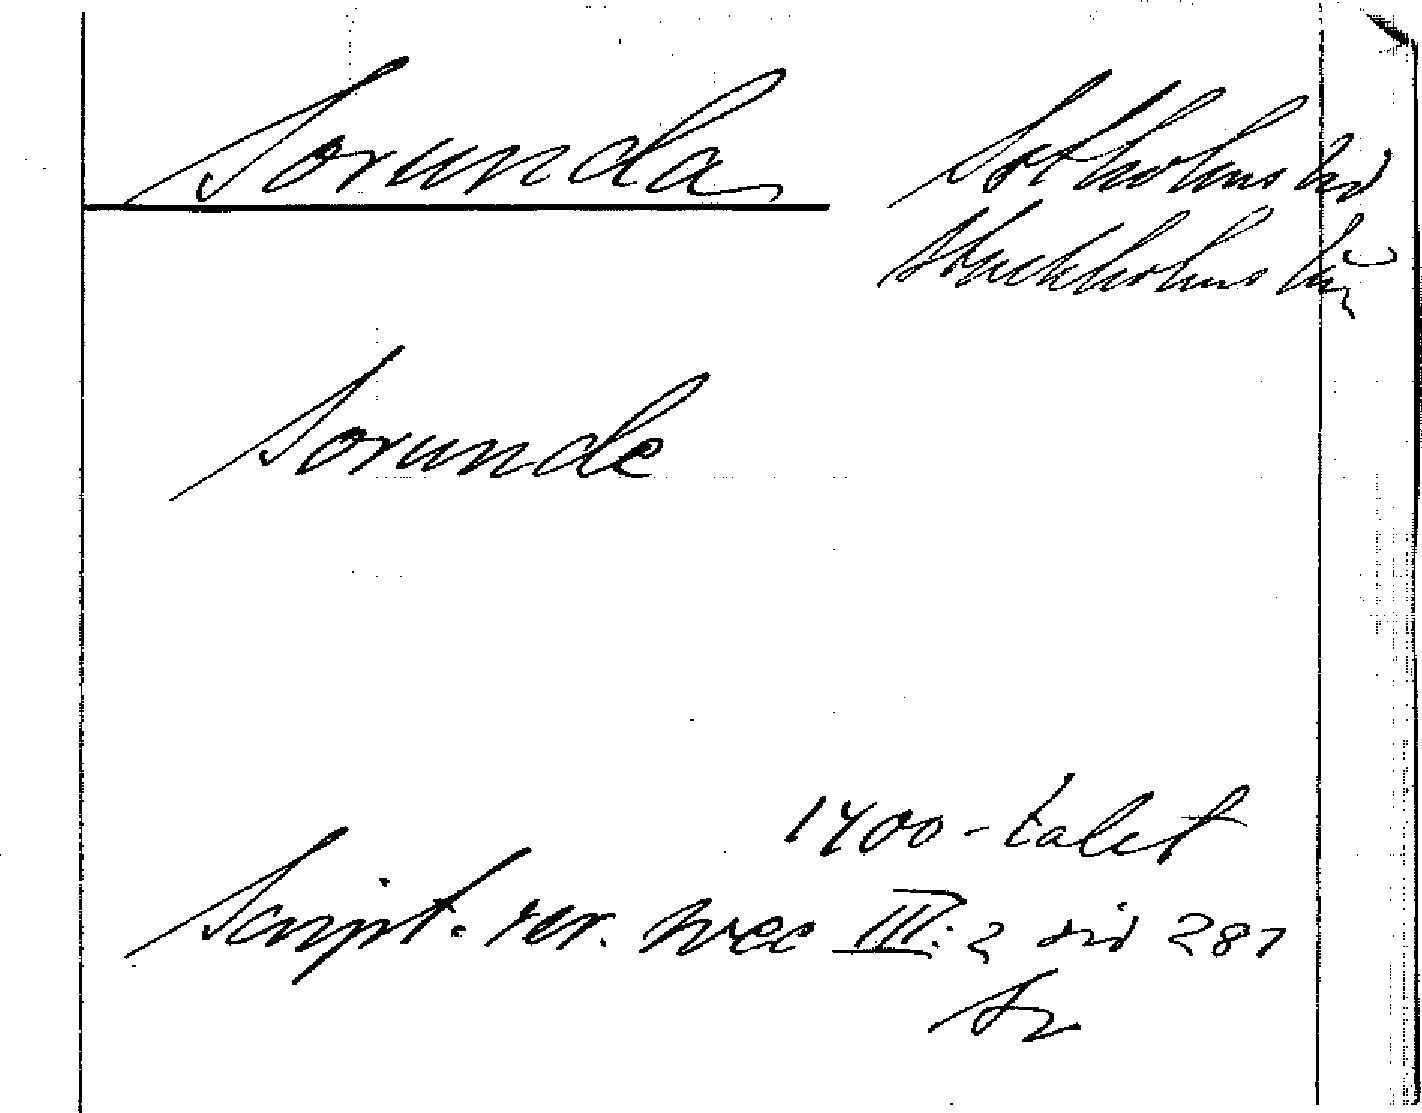 Sorunda
Sotholms hd
Stockholms län
Sorunde
1400-talet
Script. rer. svec III:2 sid 287